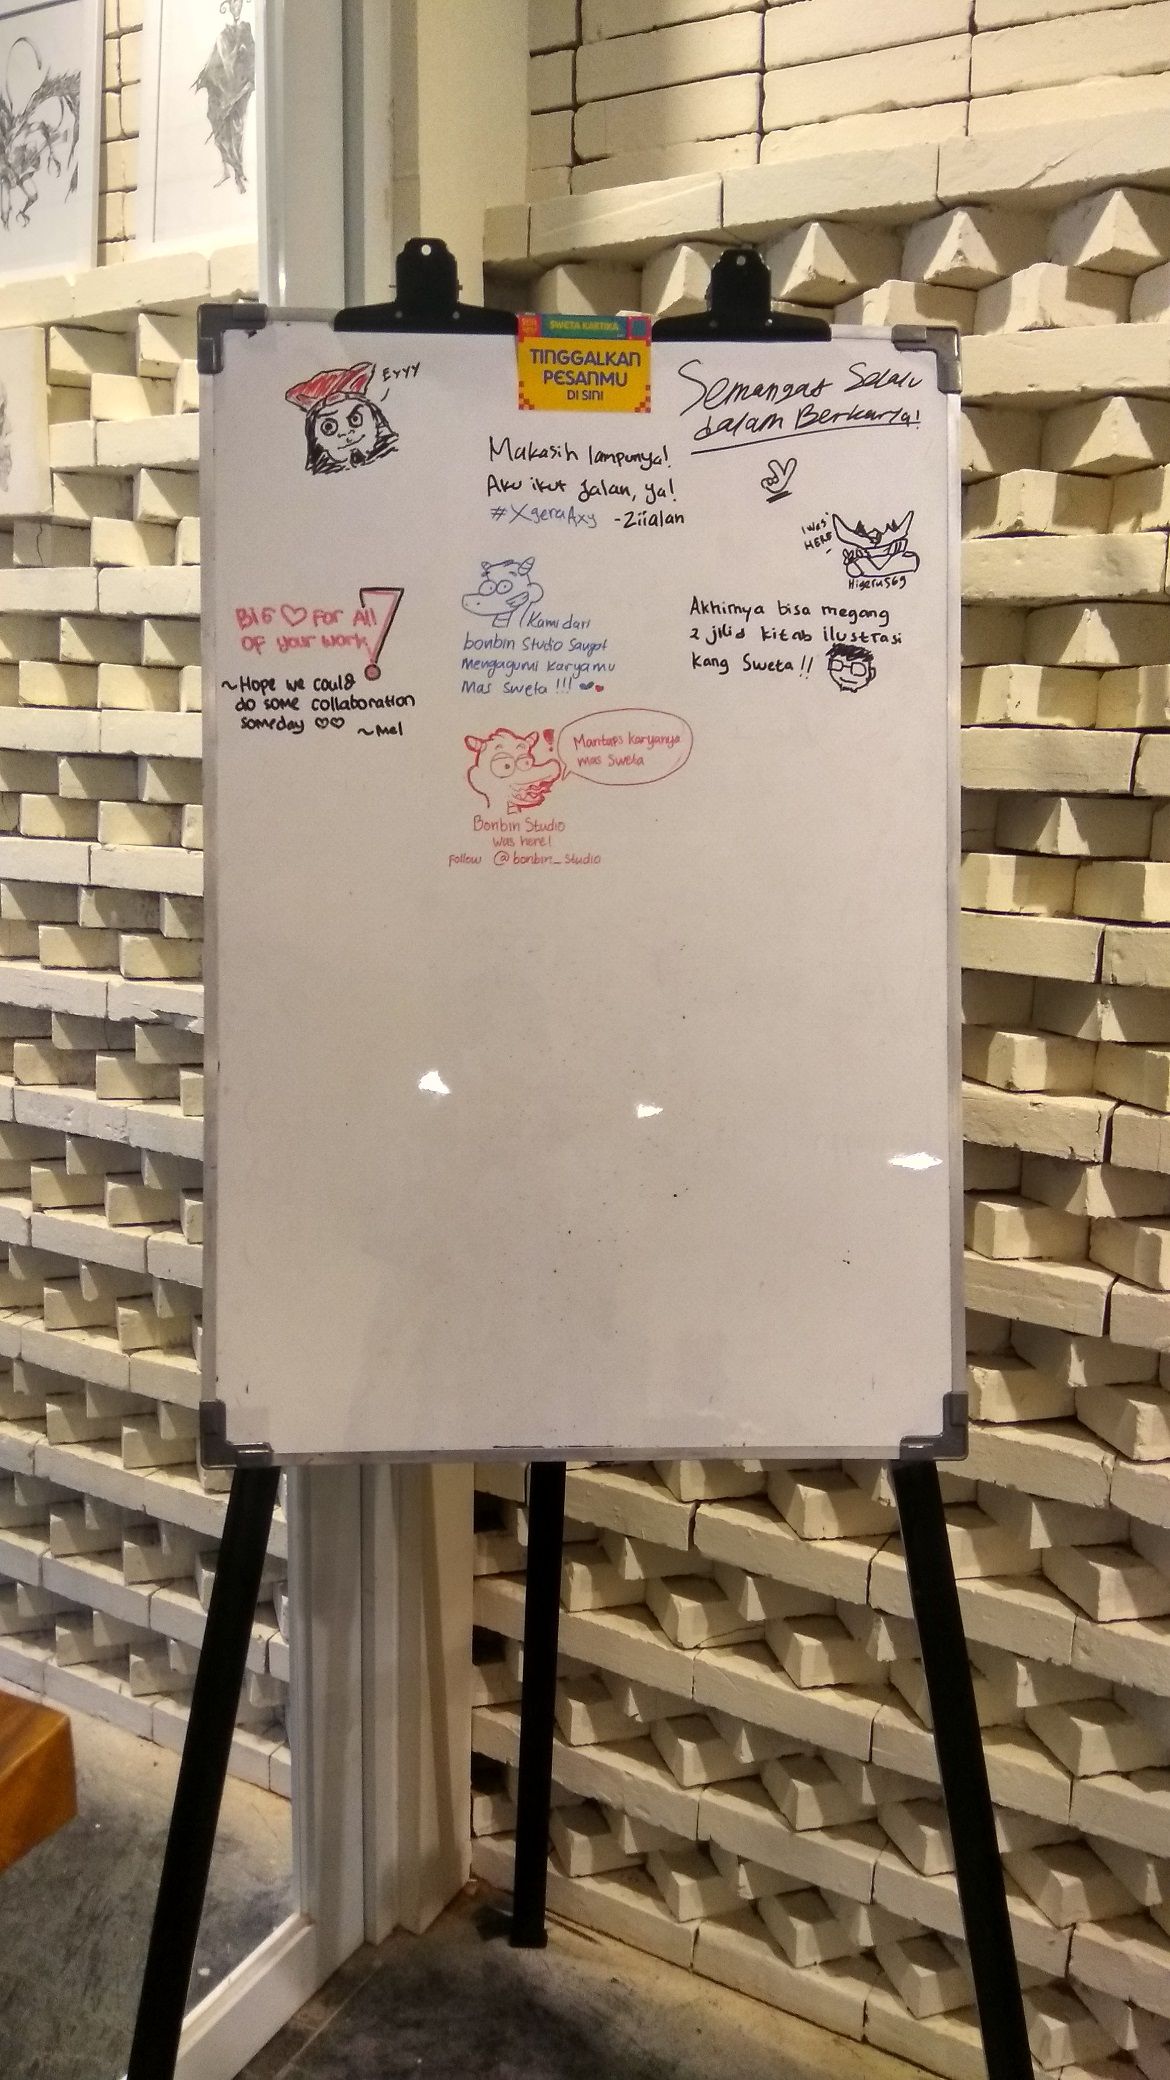 SWETA KARTIKA
TINGGALKAN
PESANMU
DI SINI
Eyyy
Semangat Selalu
dalam Berkarya!
Makasih lampunya!
Aku ikut jalan, ya!
#XgeraAxy -Ziialan
I WAS
HERE
Higeru569
BIG ♡ For All
OF your work
~Hope we could
do some collaboration
someday ♡♡
~Mel
Kami dari
bonbin Studio Sangat
Mengagumi karyamu
Mas Sweta !!!
Akhirnya bisa megang
2 jilid kitab ilustrasi
kang Sweta !!
Mantaps karyanya
mas Sweta
Bonbin Studio
Was here!
Follow @bonbin_studio